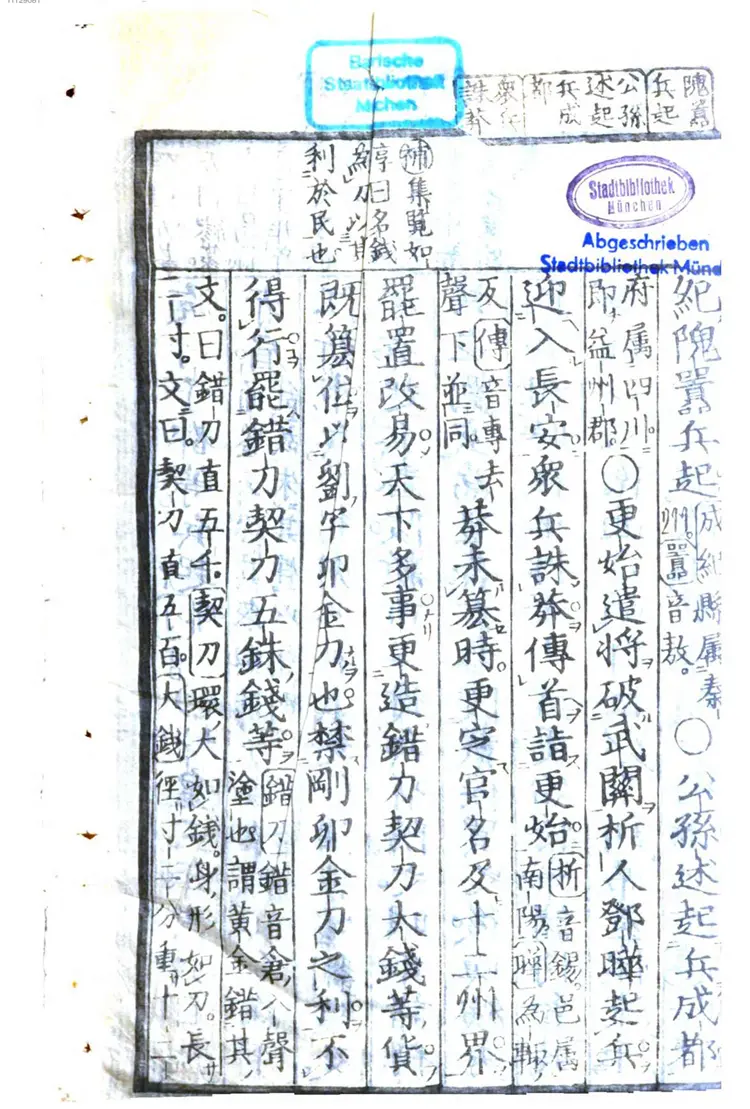 隗囂
兵起
公孫
述起
兵成
都
衆兵
誅莽
Stadtbibliothek
München
Abgeschrieben
補集覧如
淳曰名錢
為刀以其
利於民也
紀隗囂兵起
成紀縣属秦
州囂音敖
〇公孫述起兵成都
府属四川
即益州郡
〇更始遣将破武關析人鄧曄起兵
迎入長安衆兵誅莽傳首詣更始
析音錫邑属
南陽曄為輒
反傳音專去
聲下並同
莽未簒時更定官名及十二州界
罷置改易天下多事更造錯刀契刀大錢等貨
既簒位以劉字卯金刀也禁剛卯金刀之利不
得行罷錯刀契刀五銖錢等
錯刀錯音倉入聲
塗也謂黄金錯其
文曰錯刀直五千契刀環大如錢身形如刀長
二寸文曰契刀直五百大錢徑寸二分重十二